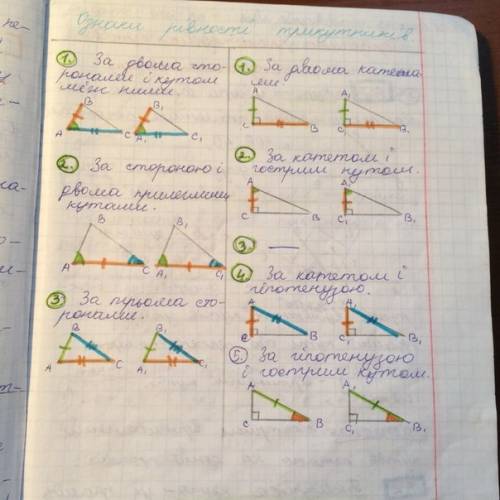 Ознаки рівності трикутників
1. За двома сто-
ронами і кутом
між ними.
B
A
C
B1
A1
C1
2. За стороною і
двома прилеглими
кутами.
B
A
C
B1
A1
C1
3 За трьома сто-
ронами.
B
A
C
B1
A1
C1
1. За двома катета-
ми.
A
C
B
A1
C1
B1
2. За катетом і
гострим кутом.
A
C
B
A1
C1
B1
3. —
4. За катетом і
гіпотенузою.
A
C
B
A1
C1
B1
5. За гіпотенузою
і гострим кутом.
A
C
B
A1
C1
B1